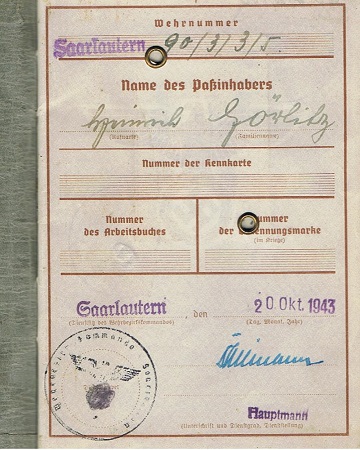 Wehrnummer
Saarlautern 90/3/3/5
Name des Paßinhabers
Heinrich Görlitz
(Rufname) (Familienname)
Nummer der Kennkarte
Nummer
des Arbeitsbuches
Nummer
der Erkennungsmarke
(im Kriege)
Saarlautern, den 20. Okt. 1943
(Dienstsitz des Wehrbezirkskommandos) (Tag, Monat, Jahr)
Hauptmann
(Unterschrift und Dienstgrad, Dienststellung)